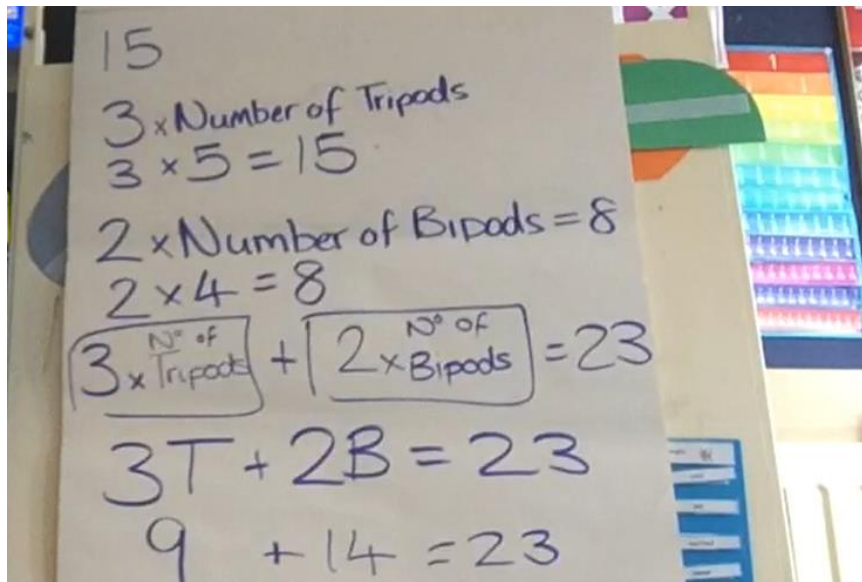 15
3 × Number of Tripods
3 × 5 = 15
2 × Number of Bipods = 8
2 × 4 = 8
3 × Nº of Tripods + 2 × Nº of Bipods = 23
3T + 2B = 23
9 + 14 = 23
1